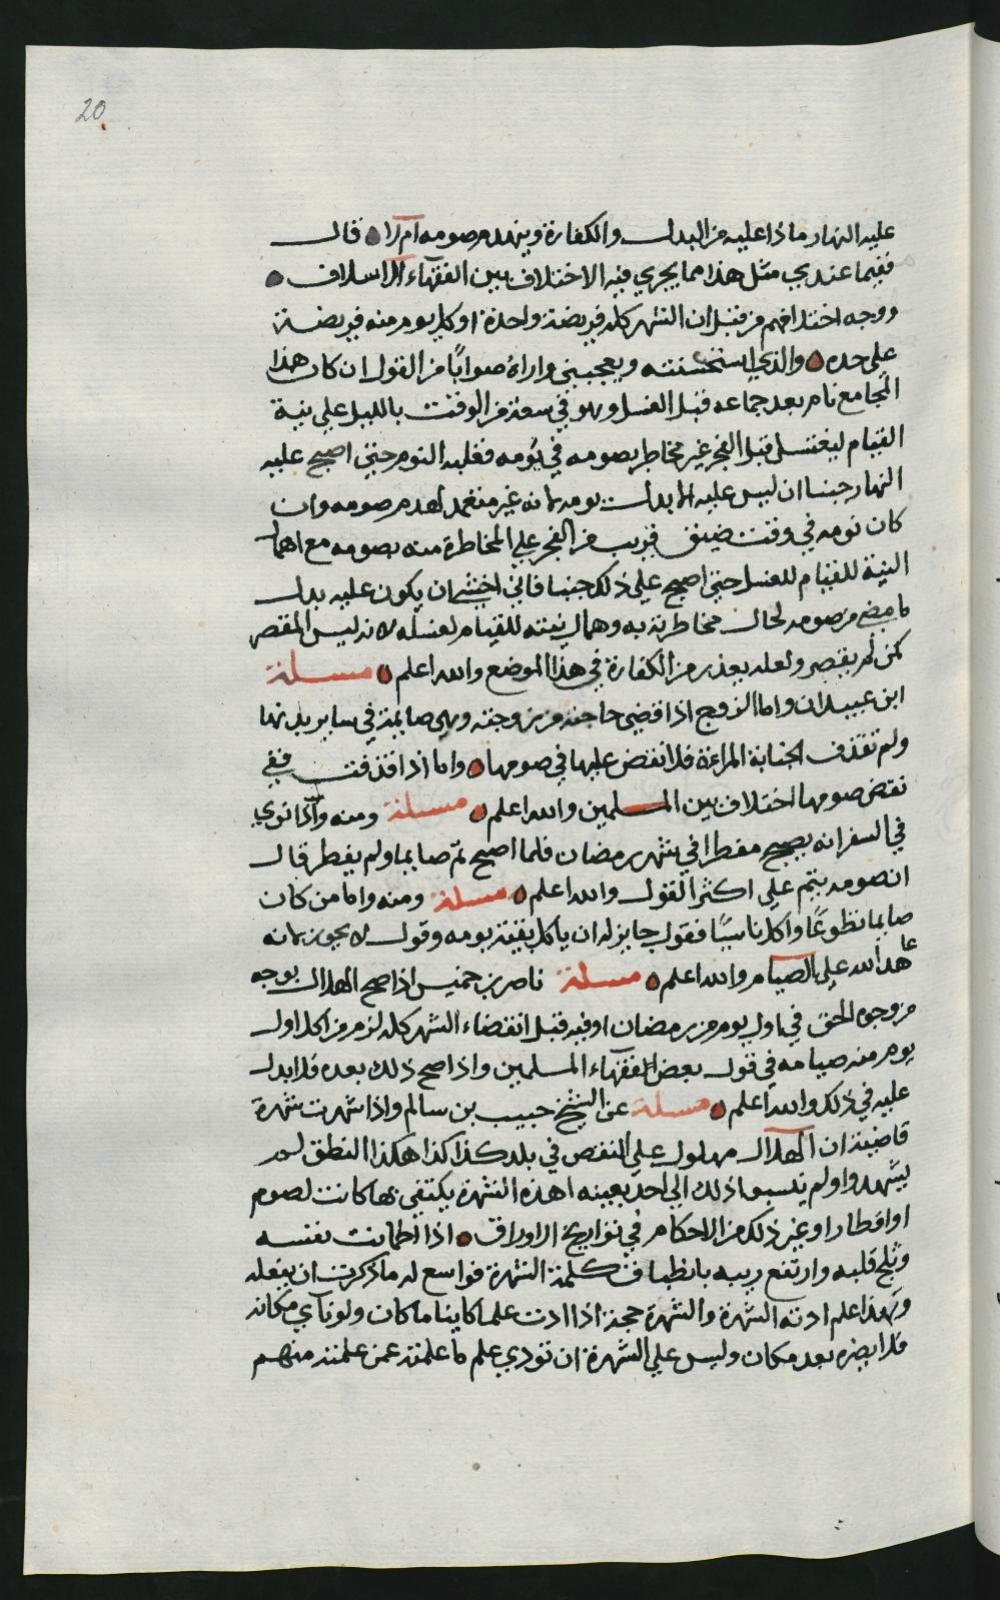 20
عليه النهار ماذا عليه من البدل والكفارة وينهدم صومه ام لا قال
ففيما عندي مثل هذا مما يجري فيه الاختلاف بين الفقهاء الاسلاف
ووجه اختلافهم من قبل ان الشهر كله فريضة واحدة او كل يوم منه فريضة
على حده والذي استحسنته ويعجبني واراه صوابًا من القول ان كان هذا
المجامع نام بعد جماعه قبل الغسل وهو في سعة من الوقت بالليل على نية
القيام ليغتسل قبل الفجر غير مخاطر بصومه في نومه فغلبه النوم حتى اصبح عليه
النهار جنبا ان ليس عليه الا بدل يومه لانه غير متعمد لهدم صومه وان
كان نومه في وقت ضيق قريب من الفجر على المخاطرة منه بصومه مع اهمال
النية للقيام للغسل حتى اصبح على ذلك جنبا فاني اخشى ان يكون عليه بدل
ما مضى من صومه لحال مخاطرته به وهمال نيته للقيام لغسله لانه ليس المقصر
كمن لم يقصر ولعله يعذر من الكفارة في هذا الموضع والله اعلم مسئلة
ابن عبيدان واما الزوج اذا قضى حاجته من زوجته وهي صايمة في ساير بدنها
ولم تقذف الجنابة المراءة فلا نقض عليها في صومها واما اذا قذفت ففي
نقض صومها اختلاف بين المسلمين والله اعلم مسئلة ومنه واذا نوى
في السفر انه يصبح مفطرا في شهر رمضان فلما اصبح تم صايما ولم يفطر قال
ان صومه يتم على اكثر القول والله اعلم مسئلة ومنه واما من كان
صايما تطوعًا واكل ناسيًا فقول جايز له ان ياكل بقية يومه وقول لا يجوز لانه
عاهد الله على الصيام والله اعلم مسئلة ناصر بن خميس اذا صح الهلال بوجه
من وجوه الحق في اول يوم من رمضان او فيه قبل انقضاء الشهر كله لزم من اكل اول
يوم منه صيامه في قول بعض الفقهاء المسلمين واذا صح ذلك بعده فلا بدل
عليه في ذلك والله اعلم مسئلة عن الشيخ حبيب بن سالم واذا شهرت شهرة
قاضية ان الهلال مهلول على النقص في بلد كذا كذا هكذا النطق لم
يشهدوا ولم ينسبوا ذلك الى احد بعينه اهذه الشهرة يكتفى بها كانت لصوم
او افطار او غير ذلك من الاحكام في تواريخ الاوراق اذا اطمانت نفسه
وثلج قلبه وارتفع ريبه بانطباق كلمة الشهرة فواسع له ما ذكرت ان يفعله
وبهذا علم ادته الشهرة والشهرة حجة اذا ادت علما كاينا ما كان ولو نآي مكانه
فلا يضره بعد مكان وليس على الشهرة ان تودي علم ما علمته عمن علمته منهم